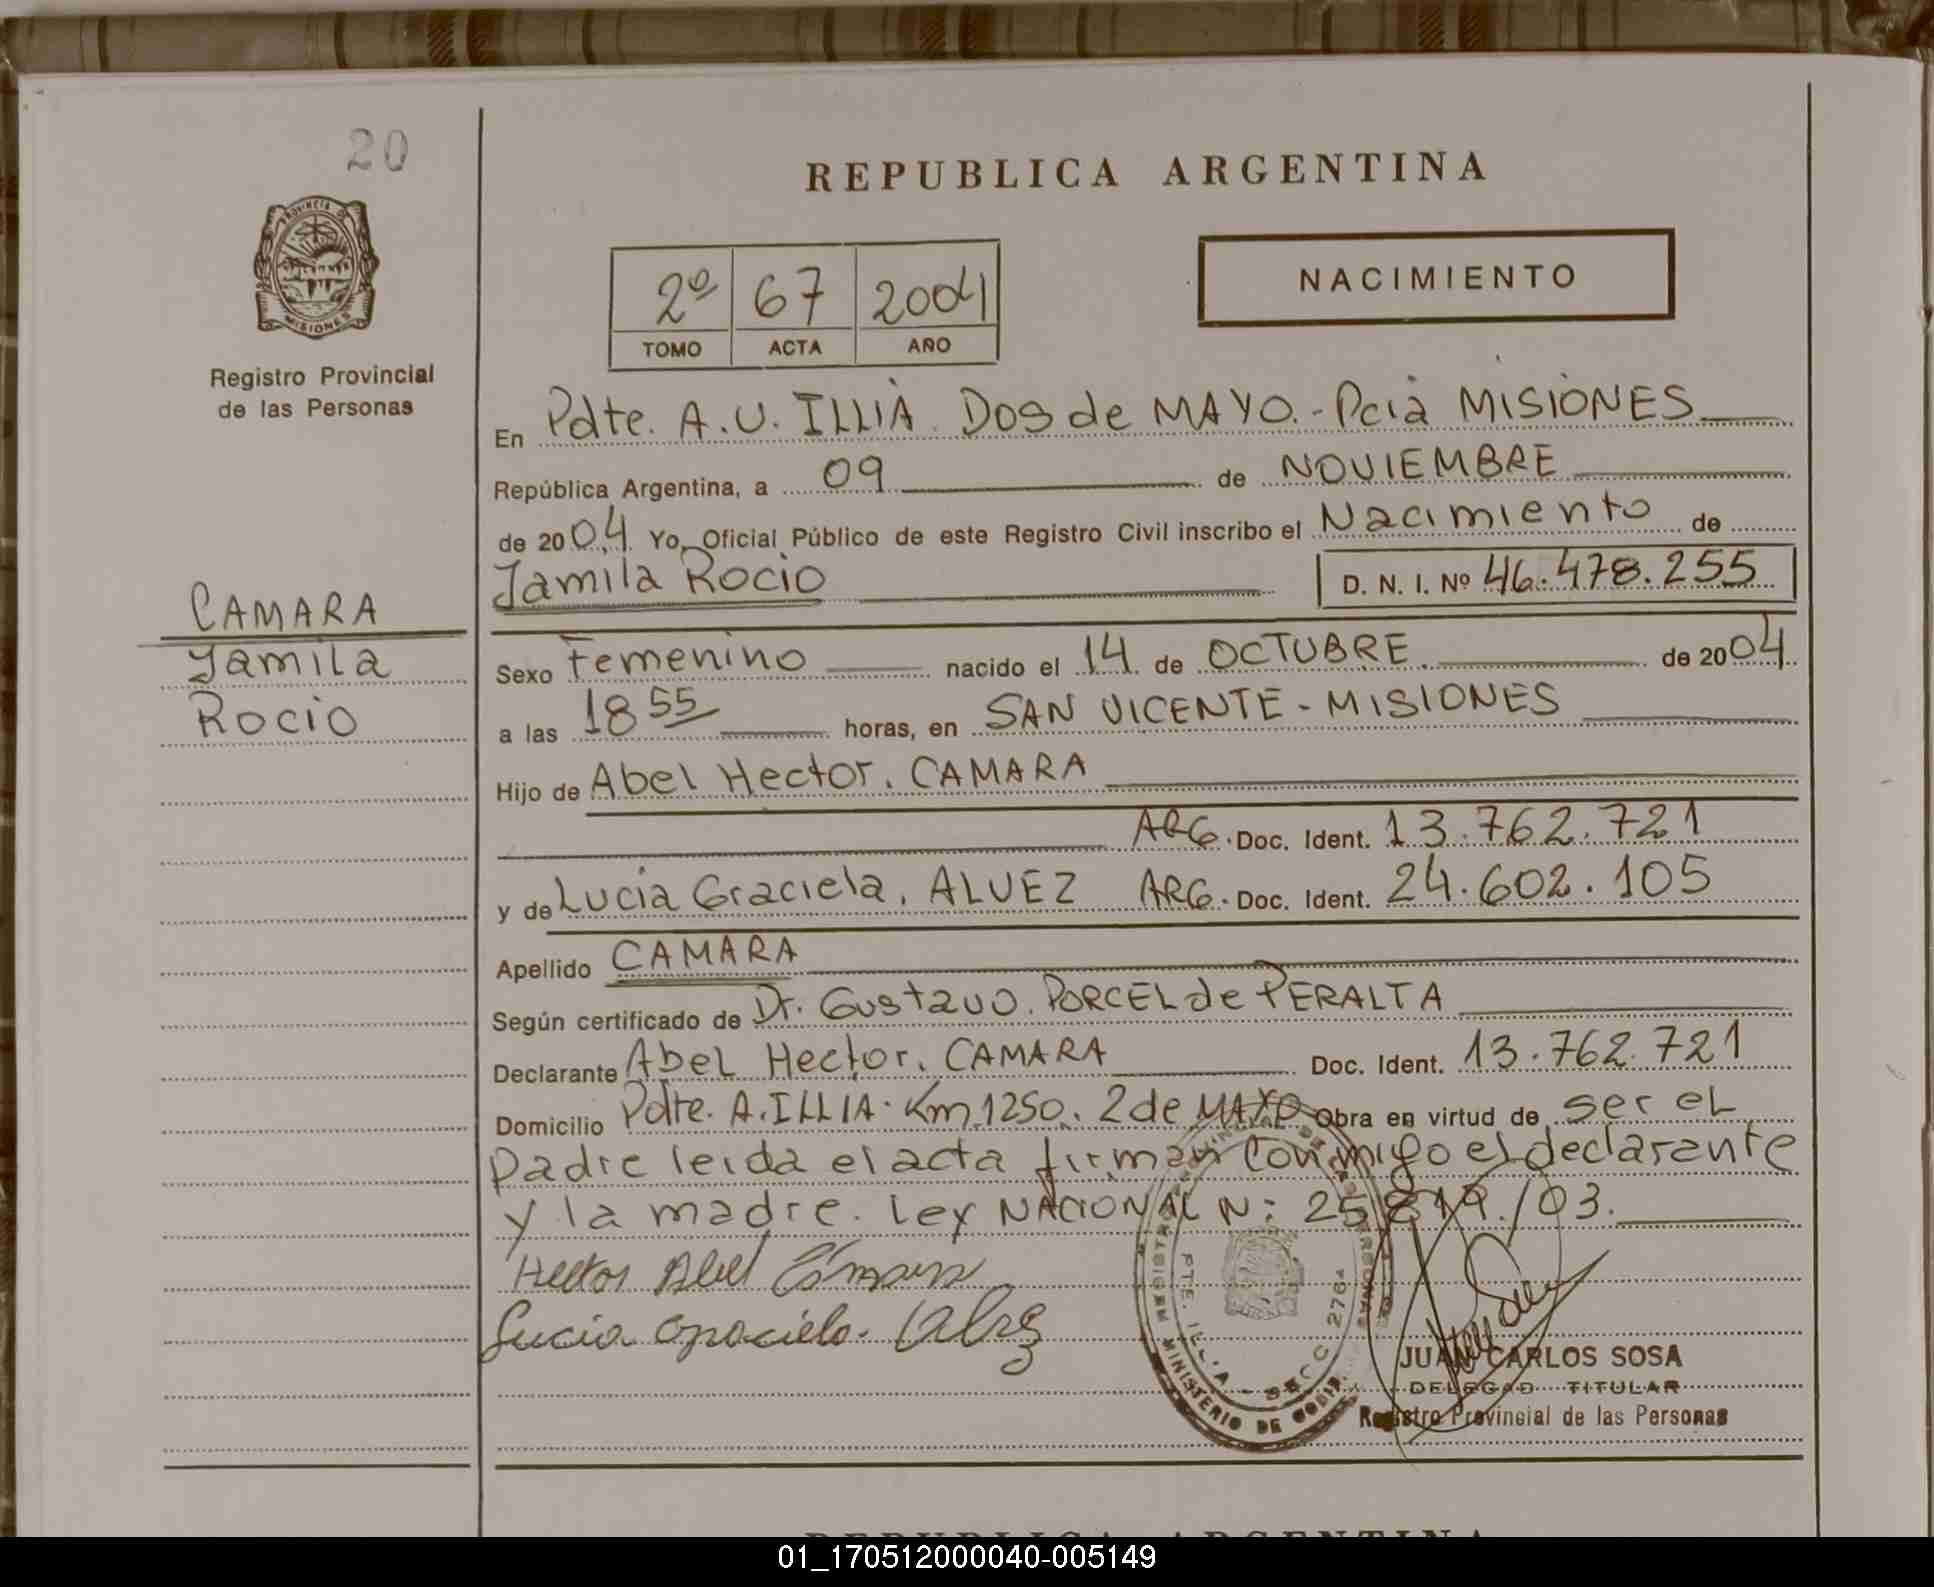 20
REPUBLICA ARGENTINA
PROVINCIA DE
MISIONES
Registro Provincial
de las Personas
2º 67 2004
TOMO ACTA AÑO
NACIMIENTO
En Pdte. A.U. ILLIA Dos de MAYO.- Pcia MISIONES
República Argentina, a 09 de NOVIEMBRE
de 2004 Yo, Oficial Público de este Registro Civil inscribo el Nacimiento de
Jamila Rocio D. N. I. Nº 46.478.255
CAMARA
Jamila
Rocio
Sexo Femenino nacido el 14 de OCTUBRE de 2004
a las 18 55 horas, en SAN VICENTE - MISIONES
Hijo de Abel Hector. CAMARA
ARG. Doc. Ident. 13.762.721
y de Lucia Graciela. ALVEZ ARG. Doc. Ident. 24.602.105
Apellido CAMARA
Según certificado de Dr. Gustavo. PORCEL de PERALTA
Declarante Abel Hector. CAMARA Doc. Ident. 13.762.721
Domicilio Pdte. A. ILLIA. Km 1250. 2 de MAYO Obra en virtud de ser el
padre leida el acta firman conmigo el declarante
y la madre. Ley NACIONAL N: 25819/03.
Hector Abel Cámara
Lucia Graciela
MINISTERIO DE GOB
PTE. ILLIA - SECC 276
JUAN CARLOS SOSA
DELEGAD TITULAR
Registro Provincial de las Personas
REPUBLICA ARGENTINA
01_170512000040-005149